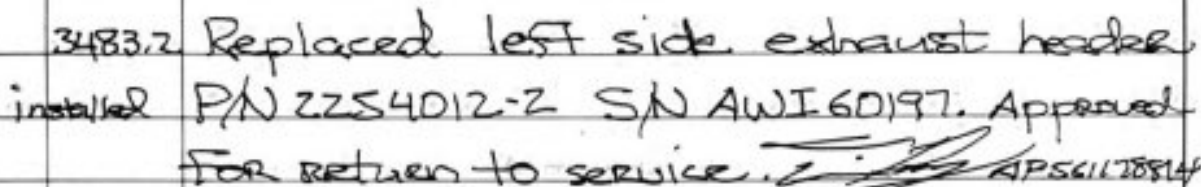 3483.2 Replaced left side exhaust header
installed P/N 2254012-2 S/N AWI60197. Approved
For return to service.